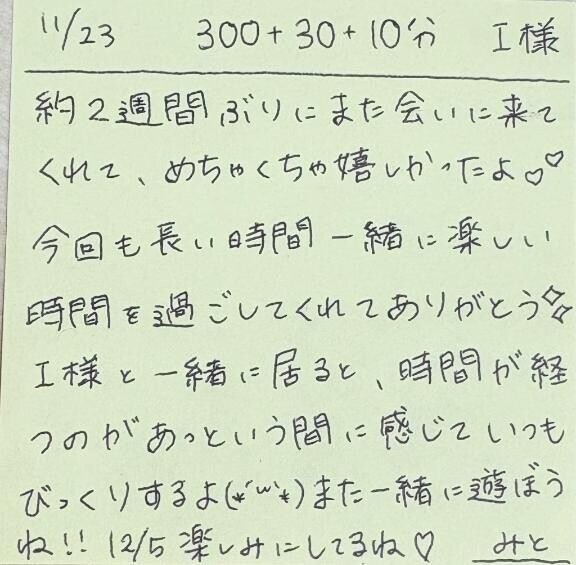 11/23 300+30+10分 I様
約2週間ぶりにまた会いに来て
くれて、めちゃくちゃ嬉しかったよ♡♡
今回も長い時間一緒に楽しい
時間を過ごしてくれてありがとう✧✧
I様と一緒に居ると、時間が経
つのがあっという間に感じていつも
びっくりするよ(*'ω'*)また一緒に遊ぼう
ね!! 12/5 楽しみにしてるね♡ みと